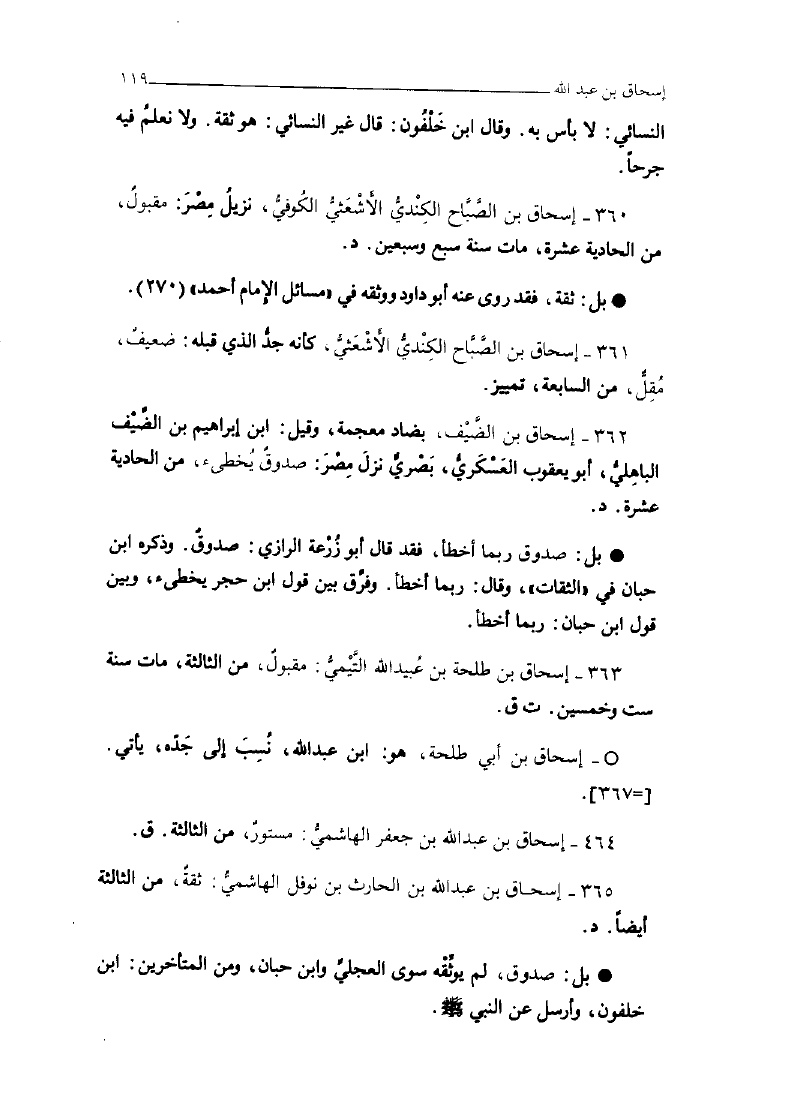 إسحاق بن عبد الله ١١٩
النسائي: لا بأس به. وقال ابن خَلْفُون: قال غير النسائي: هو ثقة. ولا نعلمُ فيه
جرحاً.
٣٦٠ ـ إسحاق بن الصَّبَّاح الكِنْديُّ الأَشْعَثيُّ الكُوفيُّ، نزيلُ مِصْرَ: مقبولٌ،
من الحادية عشرة، مات سنة سبع وسبعين. د.
● بل: ثقة، فقد روى عنه أبو داود ووثقه في «مسائل الإمام أحمد» (٢٧٠).
٣٦١ ـ إسحاق بن الصَّبَّاح الكِنْديُّ الأَشْعَثيُّ، كأنه جدُّ الذي قبله: ضعيفٌ،
مُقِلٌّ، من السابعة، تمييز.
٣٦٢ ـ إسحاق بن الضَّيْف، بضاد معجمة، وقيل: ابن إبراهيم بن الضَّيْف
الباهِليُّ، أبو يعقوب العَسْكَريُّ، بَصْريٌّ نزلَ مِصْرَ: صدوقٌ يُخطىء، من الحادية
عشرة. د.
● بل: صدوق ربما أخطأ، فقد قال أبو زُرْعة الرازي: صدوقٌ. وذكره ابن
حبان في «الثقات»، وقال: ربما أخطأ. وفرَّق بين قول ابن حجر يخطىء، وبين
قول ابن حبان: ربما أخطأ.
٣٦٣ ـ إسحاق بن طلحة بن عُبيدالله التَّيْميُّ: مقبولٌ، من الثالثة، مات سنة
ست وخمسين. ت ق.
○ ـ إسحاق بن أبي طلحة، هو: ابن عبدالله، نُسِبَ إلى جَدّه، يأتي.
[=٣٦٧].
٤٦٤ ـ إسحاق بن عبدالله بن جعفر الهاشميُّ: مستورٌ، من الثالثة. ق.
٣٦٥ ـ إسحاق بن عبدالله بن الحارث بن نوفل الهاشميُّ: ثقةٌ، من الثالثة
أيضاً. د.
● بل: صدوق، لم يوثِّقه سوى العجليِّ وابن حبان، ومن المتأخرين: ابن
خلفون، وأرسل عن النبي ﷺ.